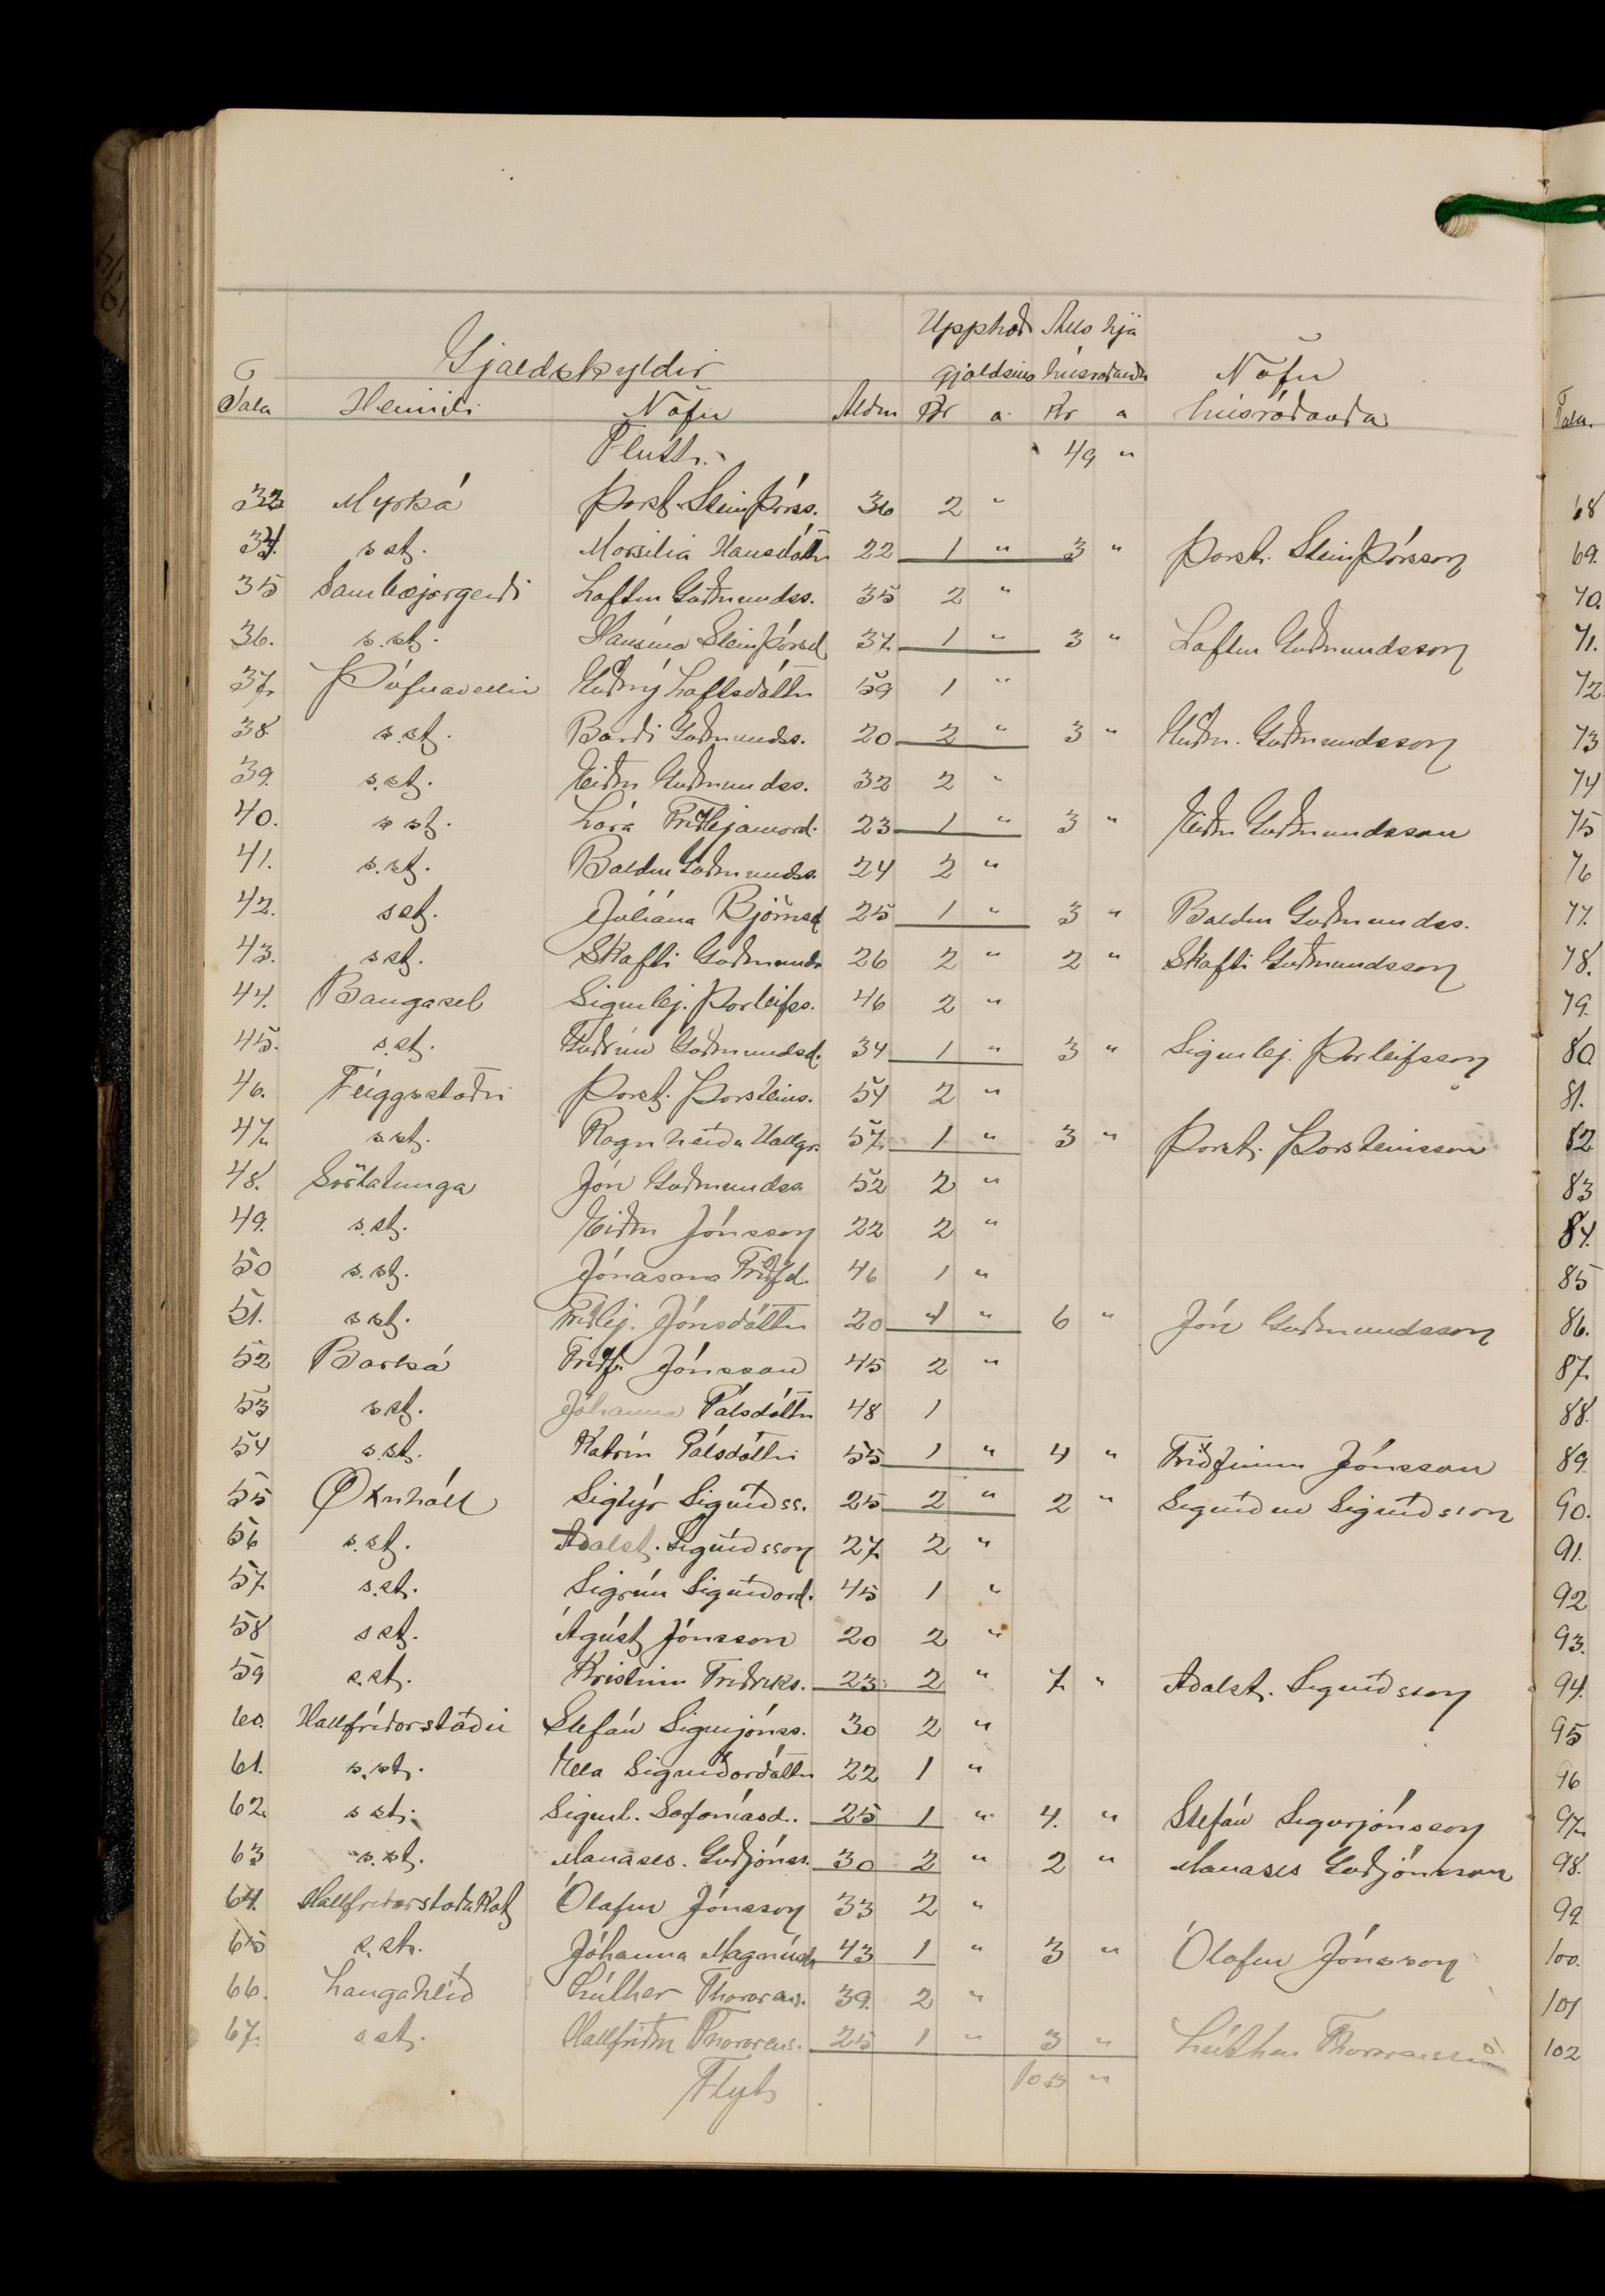 Upphæð Alls hjá
Gjaldskyldir gjaldsins húsráðanda Nöfn
Tala Heimili Nöfn Aldur Kr a Kr a húsráðanda
Flutt. 49 "
33 Myrká Þorst. Steinþórss. 36 2 "
34. s st. Marsilia Hansdóttir 22 1 " 3 " Þorst. Steinþórsson
35 Saurbæjargerði Loftur Guðmundss. 35 2 "
36. s.st. Hansína Steinþórsd. 37. 1 " 3 " Loftur Guðmundsson
37. Þúfnavellir Guðný Loftsdóttir 59 1 "
38 s.st. Barði Guðmundss. 20 2 " 3 " Guðm. Guðmundsson
39. s.st. Eiður Guðmundss. 32 2 "
40. s st. Lára Friðbjarnard. 23 1 " 3 " Eiður Guðmundsson
41. s.st. Baldur Guðmundss. 24 2 "
42. s st. Júlíana Björnsd 25 1 " 3 " Baldur Guðmundss.
43. s st. Skafti Guðmunds 26 2 " 2 " Skafti Guðmundsson
44. Baugasel Sigurbj. Þorleifss. 46 2 "
45. s.st. Guðrún Guðmundsd. 34 1 " 3 " Sigurbj. Þorleifsson
46. Flöggstaðir Þorst. Þorsteins. 54 2 "
47. s st. Ragnheiður Hallgr. 57. 1 " 3 " Þorst. Þorsteinsson
48. Sörlatunga Jón Guðmundss 52 2 "
49. s.st. Eiður Jónsson 22 2 "
50 s.st. Jónasína Friðfd. 46 1 "
51. s st. Friðbj. Jónsdóttir 20 1 " 6 " Jón Guðmundsson
52 Barká Friðf. Jónsson 45 2 "
53 s st. Jóhanna Pálsdóttir 48 1
54 s.st. Katrín Pálsdóttir 55 1 " 4 " Friðfinnur Jónsson
55 Öxnhóll Sigtýr Sigurðss. 25 2 " 2 " Sigurður Sigurðsson
56 s.st. Aðalst. Sigurðsson 27. 2 "
57. s.st. Sigrún Sigurðard. 45 1 "
58 s st. Ágúst Jónsson 20 2 "
59 s.st. Kristinn Friðriks. 23 2 " 7. " Aðalst. Sigurðsson
60. Hallfríðarstaðir Stefán Sigurjónss. 30 2 "
61. s.st. Ella Sigurðardóttir 22 1 "
62. s st. Sigurl. Sofoníasd. 25 1 " 4. " Stefán Sigurjónsson
63 s.st. Manases. Guðjónss. 30 2 " 2 " Manases Guðjónsson
64. Hallfríðarstaðakot Ólafur Jónsson 33 2 "
65 s.st. Jóhanna Magnúsd. 43 1 " 3 " Ólafur Jónsson
66. Langahlíð Lúther Thorarens. 39. 2 "
67. s st. Hallfríður Thorarens. 25 1 " 3 " Lúther Thorarensen
Flyt 103 "
Tala.
68
69.
70.
71.
72
73
74
75
76
77.
78.
79.
80
81.
82
83
84.
85
86.
87.
88.
89
90.
91.
92
93.
94.
95
96
97.
98.
99.
100.
101
102